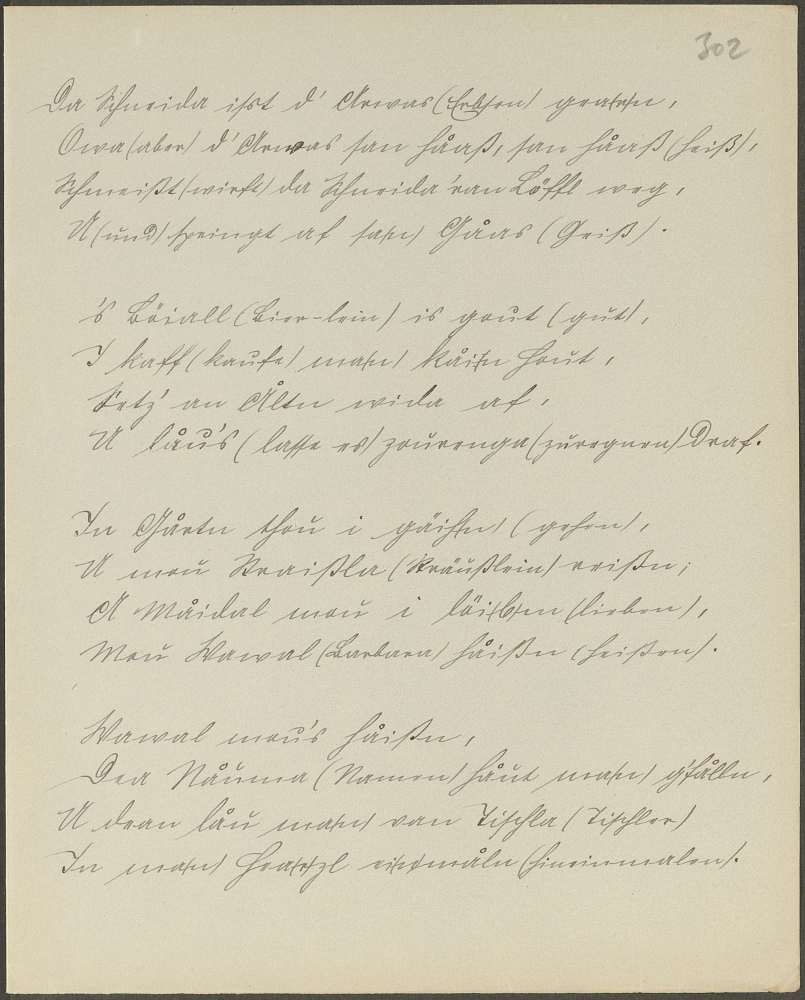 302
Da Schneida isst d' Arwas (Erbsen) gra(r)n,
Owa (aber) d' Arwas san håaß, san håaß (heiß),
Schmeißt (wirft) da Schneida 'ran Löffl weg,
U (und) springt af sa(n) Gåas (Geiß).
's Böiall (Bier-lein) is gout (gut),
I kaff (kaufe) ma(n) kåi(n) Hout,
Setz' an Åltn wida af,
U låu's (lasse es) zourenga (zuregnen) Draf.
In Gårtn thou i gäih(n) (gehen),
U mou Straißla (Sträußlein) reißn;
A Måidal mou i löi(b)en (lieben),
Mou Wawal (Barbara) håißn (heißen).
Wawal mou's håißn,
Dea Nåuma (Namen) håut ma(n) g'fålln,
U dean låu ma(n) van Tischla (Tischler)
In ma(n) Hea(r)zl ei(n)måln (hineinmalen).